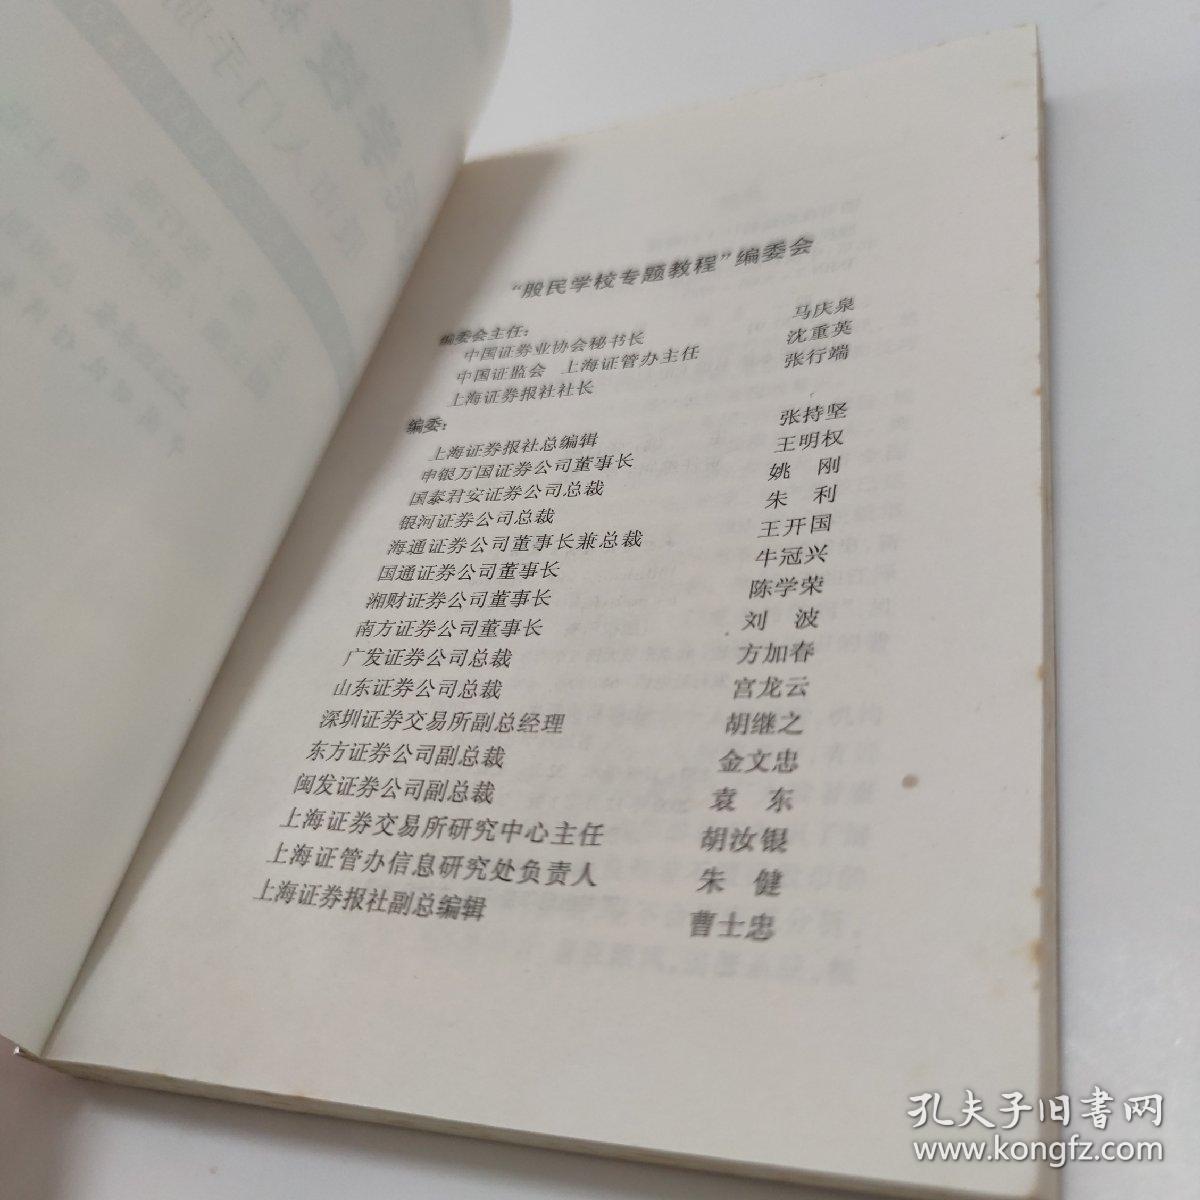 “股民学校专题教程”编委会
编委会主任：
中国证券业协会秘书长 马庆泉
中国证监会 上海证管办主任 沈重英
上海证券报社社长 张行端
编委：
上海证券报社总编辑 张持坚
申银万国证券公司董事长 王明权
国泰君安证券公司总裁 姚 刚
银河证券公司总裁 朱 利
海通证券公司董事长兼总裁 王开国
国通证券公司董事长 牛冠兴
湘财证券公司董事长 陈学荣
南方证券公司董事长 刘 波
广发证券公司总裁 方加春
山东证券公司总裁 宫龙云
深圳证券交易所副总经理 胡继之
东方证券公司副总裁 金文忠
闽发证券公司副总裁 袁 东
上海证券交易所研究中心主任 胡汝银
上海证管办信息研究处负责人 朱 健
上海证券报社副总编辑 曹士忠
孔夫子旧书网
www.kongfz.com